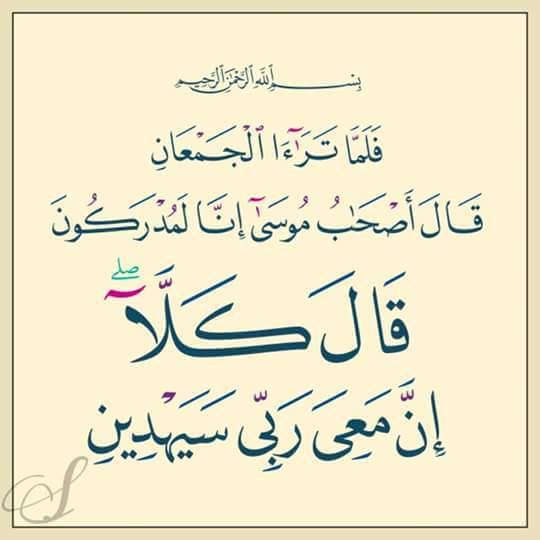 بِسْمِ ٱللَّهِ ٱلرَّحْمَٰنِ ٱلرَّحِيمِ
فَلَمَّا تَرَٰٓءَا ٱلْجَمْعَانِ
قَالَ أَصْحَٰبُ مُوسَىٰٓ إِنَّا لَمُدْرَكُونَ
قَالَ كَلَّآ ۖ
إِنَّ مَعِىَ رَبِّى سَيَهْدِينِ
S